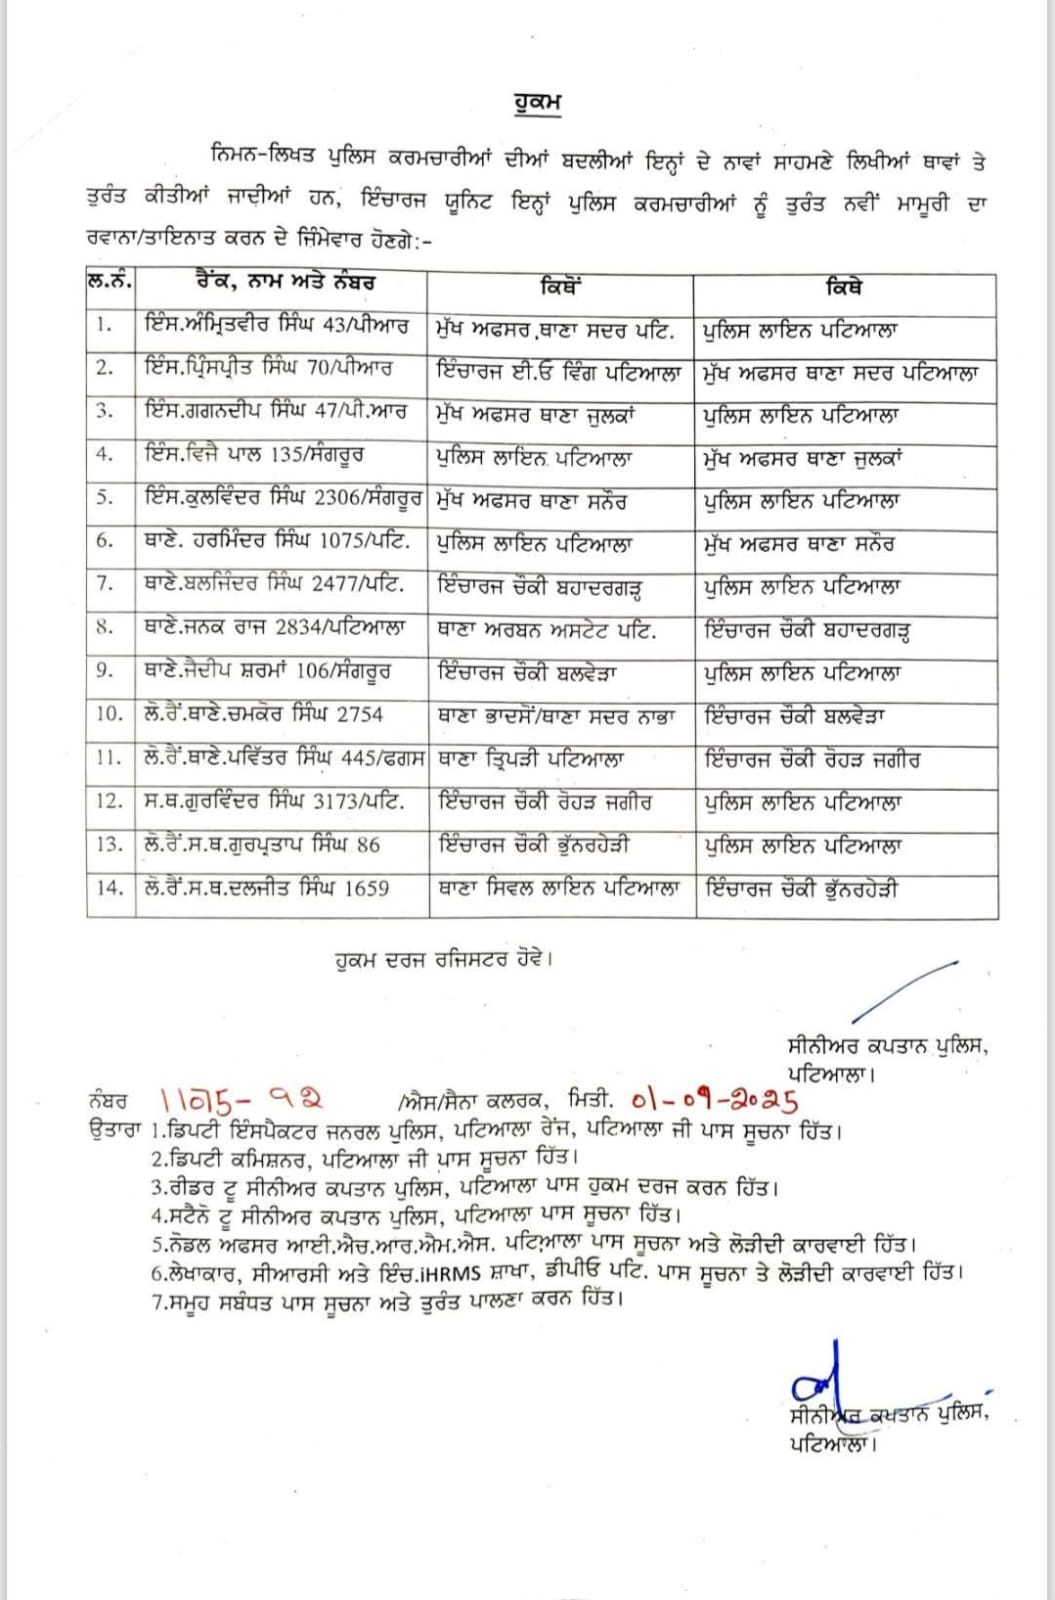 ਹੁਕਮ
ਨਿਮਨ-ਲਿਖਤ ਪੁਲਿਸ ਕਰਮਚਾਰੀਆਂ ਦੀਆਂ ਬਦਲੀਆਂ ਇਨ੍ਹਾਂ ਦੇ ਨਾਵਾਂ ਸਾਹਮਣੇ ਲਿਖੀਆਂ ਥਾਵਾਂ ਤੇ
ਤੁਰੰਤ ਕੀਤੀਆਂ ਜਾਦੀਆਂ ਹਨ, ਇੰਚਾਰਜ ਯੂਨਿਟ ਇਨ੍ਹਾਂ ਪੁਲਿਸ ਕਰਮਚਾਰੀਆਂ ਨੂੰ ਤੁਰੰਤ ਨਵੀਂ ਮਾਮੂਰੀ ਦਾ
ਰਵਾਨਾ/ਤਾਇਨਾਤ ਕਰਨ ਦੇ ਜਿੰਮੇਵਾਰ ਹੋਣਗੇ:-
ਲ.ਨੰ. ਰੈਂਕ, ਨਾਮ ਅਤੇ ਨੰਬਰ ਕਿਥੋਂ ਕਿਥੇ
1. ਇੰਸ.ਅੰਮ੍ਰਿਤਵੀਰ ਸਿੰਘ 43/ਪੀਆਰ ਮੁੱਖ ਅਫਸਰ,ਥਾਣਾ ਸਦਰ ਪਟਿ. ਪੁਲਿਸ ਲਾਇਨ ਪਟਿਆਲਾ
2. ਇੰਸ.ਪ੍ਰਿੰਸਪ੍ਰੀਤ ਸਿੰਘ 70/ਪੀਆਰ ਇੰਚਾਰਜ ਈ.ਓ ਵਿੰਗ ਪਟਿਆਲਾ ਮੁੱਖ ਅਫਸਰ ਥਾਣਾ ਸਦਰ ਪਟਿਆਲਾ
3. ਇੰਸ.ਗਗਨਦੀਪ ਸਿੰਘ 47/ਪੀ.ਆਰ ਮੁੱਖ ਅਫਸਰ ਥਾਣਾ ਜੁਲਕਾਂ ਪੁਲਿਸ ਲਾਇਨ ਪਟਿਆਲਾ
4. ਇੰਸ.ਵਿਜੈ ਪਾਲ 135/ਸੰਗਰੂਰ ਪੁਲਿਸ ਲਾਇਨ ਪਟਿਆਲਾ ਮੁੱਖ ਅਫਸਰ ਥਾਣਾ ਜੁਲਕਾਂ
5. ਇੰਸ.ਕੁਲਵਿੰਦਰ ਸਿੰਘ 2306/ਸੰਗਰੂਰ ਮੁੱਖ ਅਫਸਰ ਥਾਣਾ ਸਨੌਰ ਪੁਲਿਸ ਲਾਇਨ ਪਟਿਆਲਾ
6. ਥਾਣੇ. ਹਰਮਿੰਦਰ ਸਿੰਘ 1075/ਪਟਿ. ਪੁਲਿਸ ਲਾਇਨ ਪਟਿਆਲਾ ਮੁੱਖ ਅਫਸਰ ਥਾਣਾ ਸਨੌਰ
7. ਥਾਣੇ.ਬਲਜਿੰਦਰ ਸਿੰਘ 2477/ਪਟਿ. ਇੰਚਾਰਜ ਚੌਕੀ ਬਹਾਦਰਗੜ੍ਹ ਪੁਲਿਸ ਲਾਇਨ ਪਟਿਆਲਾ
8. ਥਾਣੇ.ਜਨਕ ਰਾਜ 2834/ਪਟਿਆਲਾ ਥਾਣਾ ਅਰਬਨ ਅਸਟੇਟ ਪਟਿ. ਇੰਚਾਰਜ ਚੌਕੀ ਬਹਾਦਰਗੜ੍ਹ
9. ਥਾਣੇ.ਜੈਦੀਪ ਸ਼ਰਮਾਂ 106/ਸੰਗਰੂਰ ਇੰਚਾਰਜ ਚੌਕੀ ਬਲਵੇੜਾ ਪੁਲਿਸ ਲਾਇਨ ਪਟਿਆਲਾ
10. ਲੋ.ਰੈਂ.ਥਾਣੇ.ਚਮਕੋਰ ਸਿੰਘ 2754 ਥਾਣਾ ਭਾਦਸੋਂ/ਥਾਣਾ ਸਦਰ ਨਾਭਾ ਇੰਚਾਰਜ ਚੌਕੀ ਬਲਵੇੜਾ
11. ਲੋ.ਰੈਂ.ਥਾਣੇ.ਪਵਿੱਤਰ ਸਿੰਘ 445/ਫਗਸ ਥਾਣਾ ਤ੍ਰਿਪੜੀ ਪਟਿਆਲਾ ਇੰਚਾਰਜ ਚੌਕੀ ਰੋਹੜ ਜਗੀਰ
12. ਸ.ਥ.ਗੁਰਵਿੰਦਰ ਸਿੰਘ 3173/ਪਟਿ. ਇੰਚਾਰਜ ਚੌਕੀ ਰੋਹੜ ਜਗੀਰ ਪੁਲਿਸ ਲਾਇਨ ਪਟਿਆਲਾ
13. ਲੋ.ਰੈਂ.ਸ.ਥ.ਗੁਰਪ੍ਰਤਾਪ ਸਿੰਘ 86 ਇੰਚਾਰਜ ਚੌਕੀ ਭੁੱਨਰਹੇੜੀ ਪੁਲਿਸ ਲਾਇਨ ਪਟਿਆਲਾ
14. ਲੋ.ਰੈਂ.ਸ.ਥ.ਦਲਜੀਤ ਸਿੰਘ 1659 ਥਾਣਾ ਸਿਵਲ ਲਾਇਨ ਪਟਿਆਲਾ ਇੰਚਾਰਜ ਚੌਕੀ ਭੁੱਨਰਹੇੜੀ
ਹੁਕਮ ਦਰਜ ਰਜਿਸਟਰ ਹੋਵੇ।
ਸੀਨੀਅਰ ਕਪਤਾਨ ਪੁਲਿਸ,
ਪਟਿਆਲਾ।
ਨੰਬਰ /ਐਸ/ਸੈਨਾ ਕਲਰਕ, ਮਿਤੀ. 01-09-2025
ਉਤਾਰਾ 1.ਡਿਪਟੀ ਇੰਸਪੈਕਟਰ ਜਨਰਲ ਪੁਲਿਸ, ਪਟਿਆਲਾ ਰੇਂਜ, ਪਟਿਆਲਾ ਜੀ ਪਾਸ ਸੂਚਨਾ ਹਿੱਤ।
2.ਡਿਪਟੀ ਕਮਿਸ਼ਨਰ, ਪਟਿਆਲਾ ਜੀ ਪਾਸ ਸੂਚਨਾ ਹਿੱਤ।
3.ਰੀਡਰ ਟੂ ਸੀਨੀਅਰ ਕਪਤਾਨ ਪੁਲਿਸ, ਪਟਿਆਲਾ ਪਾਸ ਹੁਕਮ ਦਰਜ ਕਰਨ ਹਿੱਤ।
4.ਸਟੈਨੋ ਟੂ ਸੀਨੀਅਰ ਕਪਤਾਨ ਪੁਲਿਸ, ਪਟਿਆਲਾ ਪਾਸ ਸੂਚਨਾ ਹਿੱਤ।
5.ਨੋਡਲ ਅਫਸਰ ਆਈ.ਐਚ.ਆਰ.ਐਮ.ਐਸ. ਪਟਿਆਲਾ ਪਾਸ ਸੂਚਨਾ ਅਤੇ ਲੋੜੀਦੀ ਕਾਰਵਾਈ ਹਿੱਤ।
6.ਲੇਖਾਕਾਰ, ਸੀਆਰਸੀ ਅਤੇ ਇੰਚ.iHRMS ਸ਼ਾਖਾ, ਡੀਪੀਓ ਪਟਿ. ਪਾਸ ਸੂਚਨਾ ਤੇ ਲੋੜੀਦੀ ਕਾਰਵਾਈ ਹਿੱਤ।
7.ਸਮੂਹ ਸਬੰਧਤ ਪਾਸ ਸੂਚਨਾ ਅਤੇ ਤੁਰੰਤ ਪਾਲਣਾ ਕਰਨ ਹਿੱਤ।
ਸੀਨੀਅਰ ਕਪਤਾਨ ਪੁਲਿਸ,
ਪਟਿਆਲਾ।